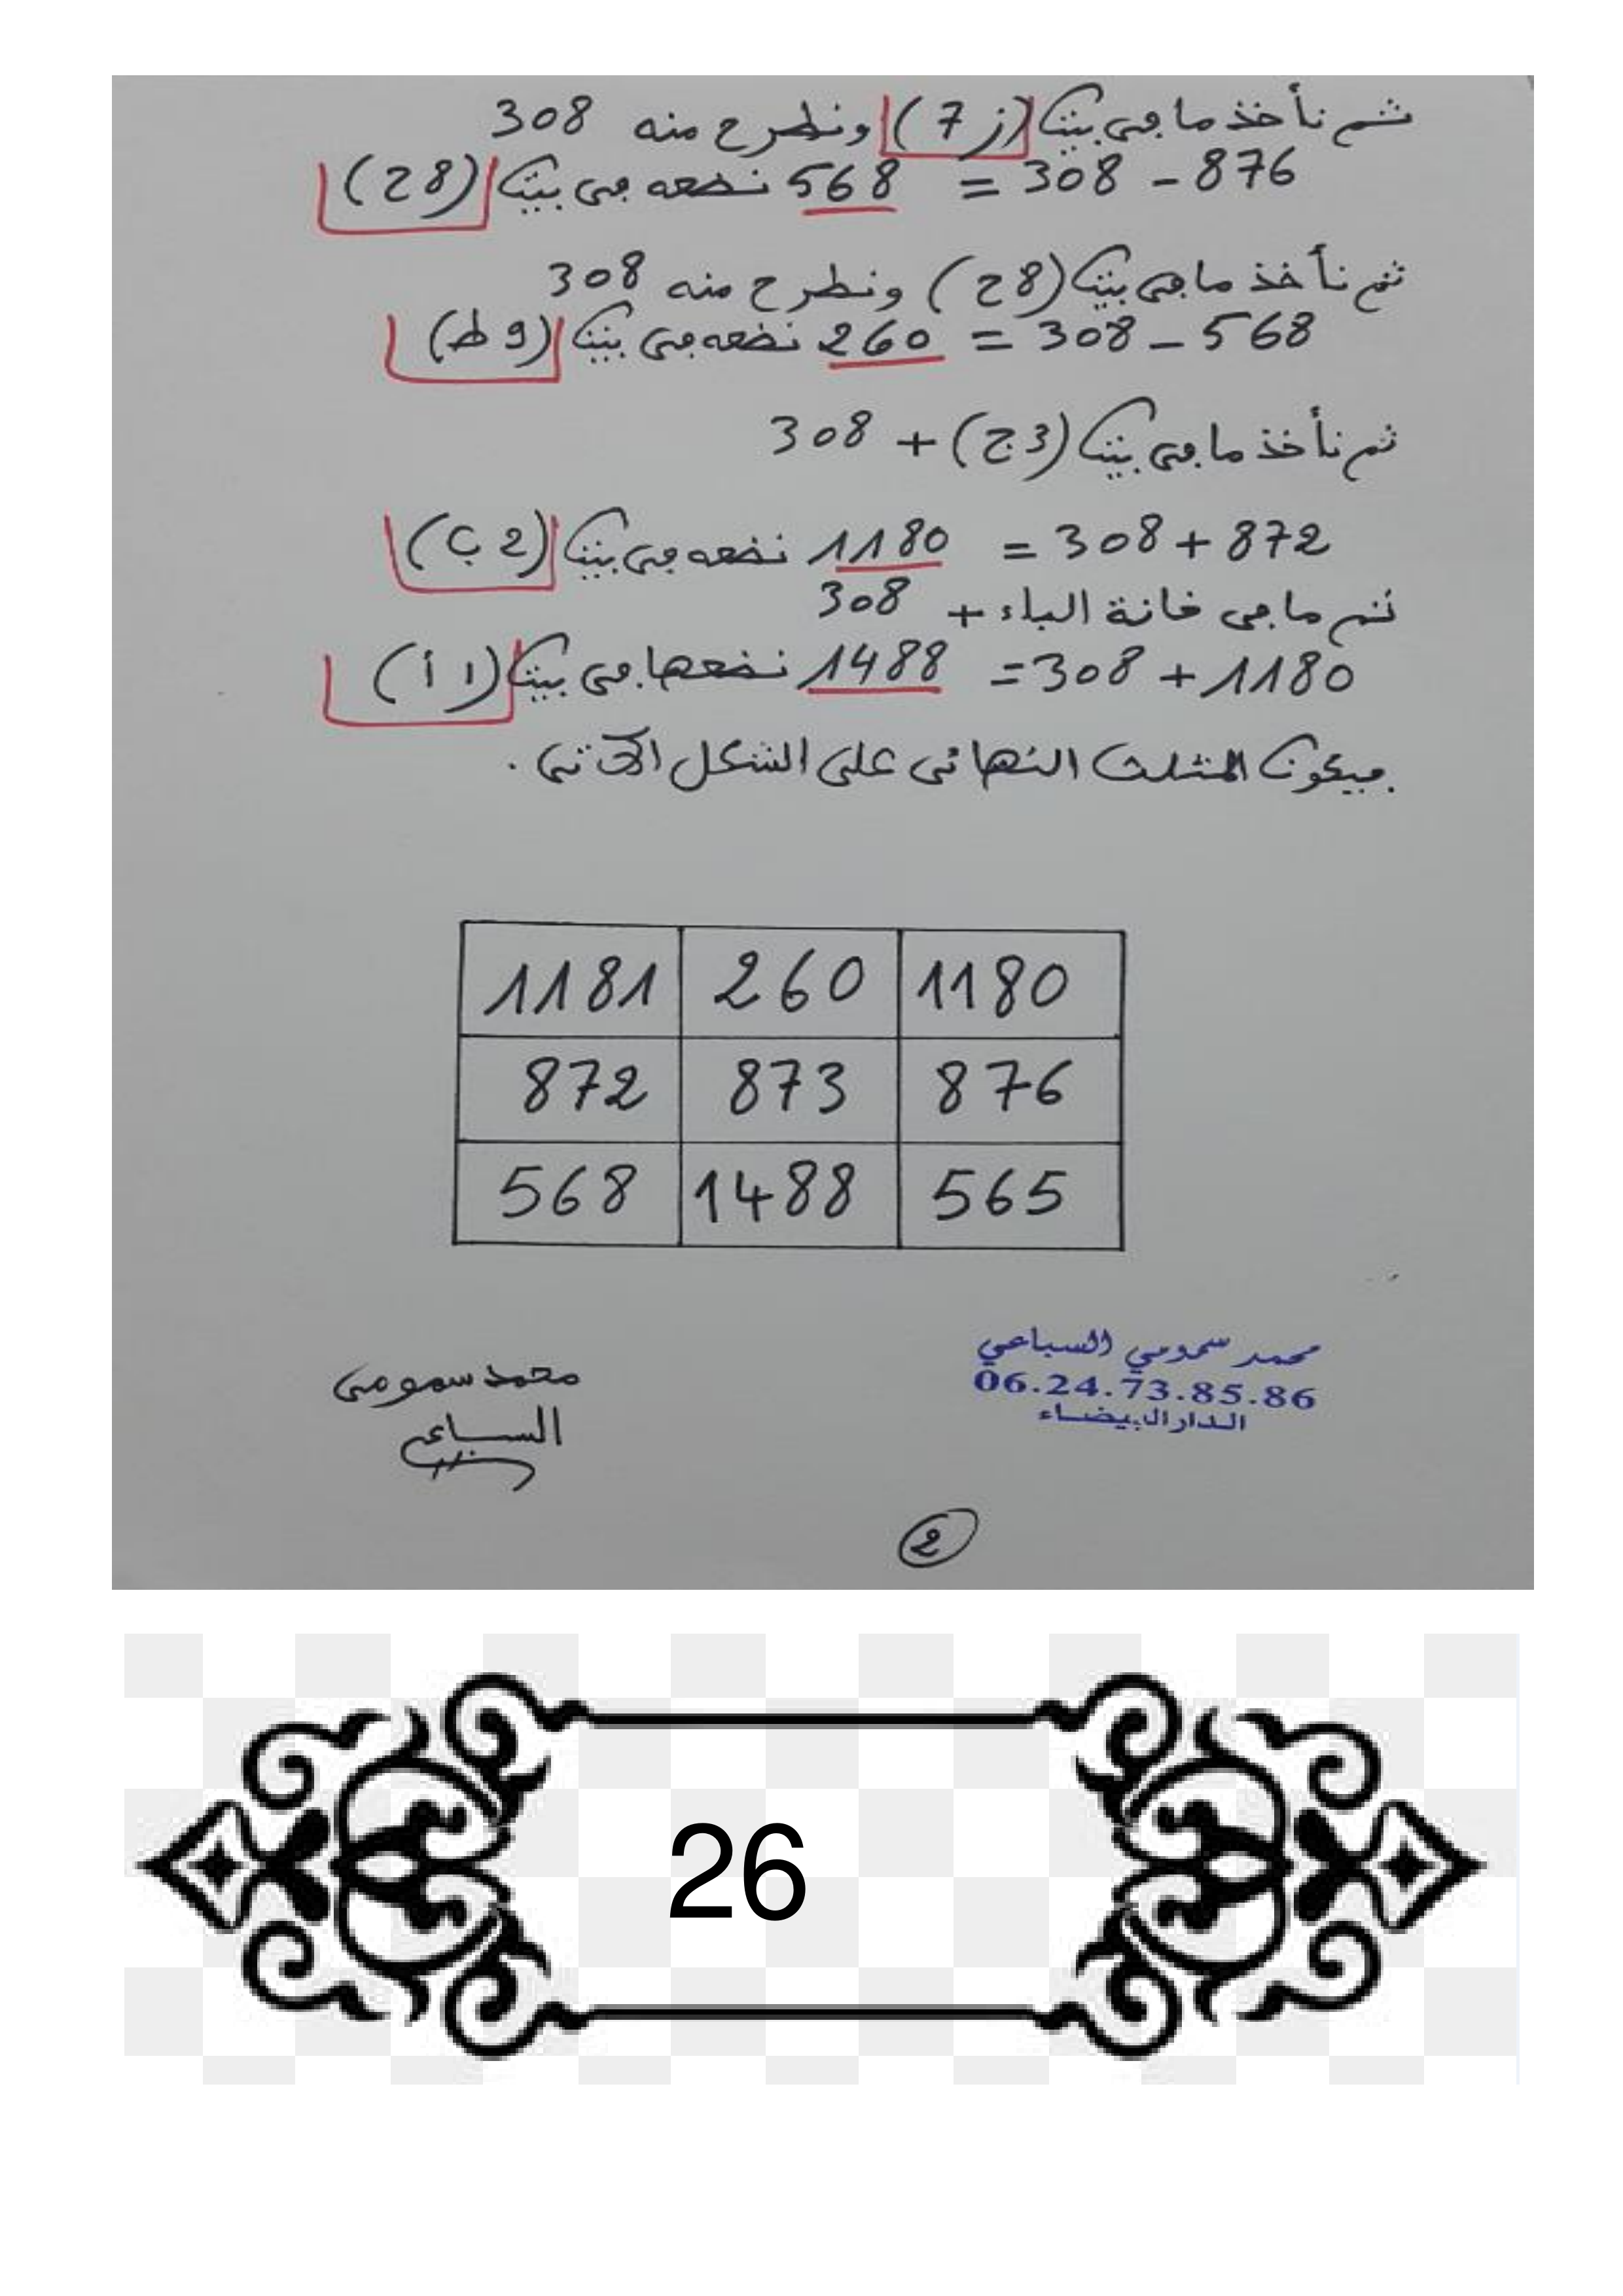 ثم نأخذ ما في بيت (ز 7) ونطرح منه 308
876 - 308 = 568 نضعه في بيت (8 ح)
ثم نأخذ ما في بيت (8 ح) ونطرح منه 308
568 - 308 = 260 نضعه في بيت (9 ط)
ثم نأخذ ما في بيت (3 ج) + 308
872 + 308 = 1180 نضعه في بيت (2 ب)
ثم ما في خانة الباء + 308
1180 + 308 = 1488 نضعها في بيت (1 أ)
فيكون المثلث النهائي على الشكل الآتي .
1181 260 1180
872 873 876
568 1488 565
محمد سمومي السباعي
06.24.73.85.86
الدار البيضاء
محمد سمومي
السباعي
2
26